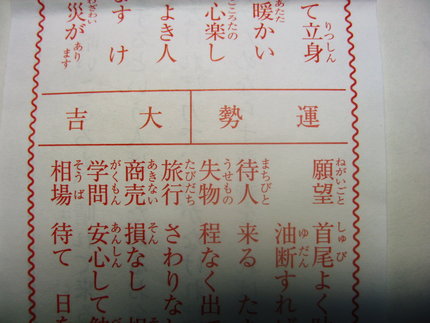 りつしん
て立身
あたた
暖かい
こころたの
心楽し
よき人
ます け
わざわい
災が あります
運勢
大吉
ねがいごと しゅび
願望 首尾よく
ゆだん
油断すれ
まちびと
待人 来る た
うせもの
失物 程なく出
たびだち
旅行 さわりな
あきない そん
商売 損なし
がくもん あんしん
学問 安心して
そうば
相場 待て 日